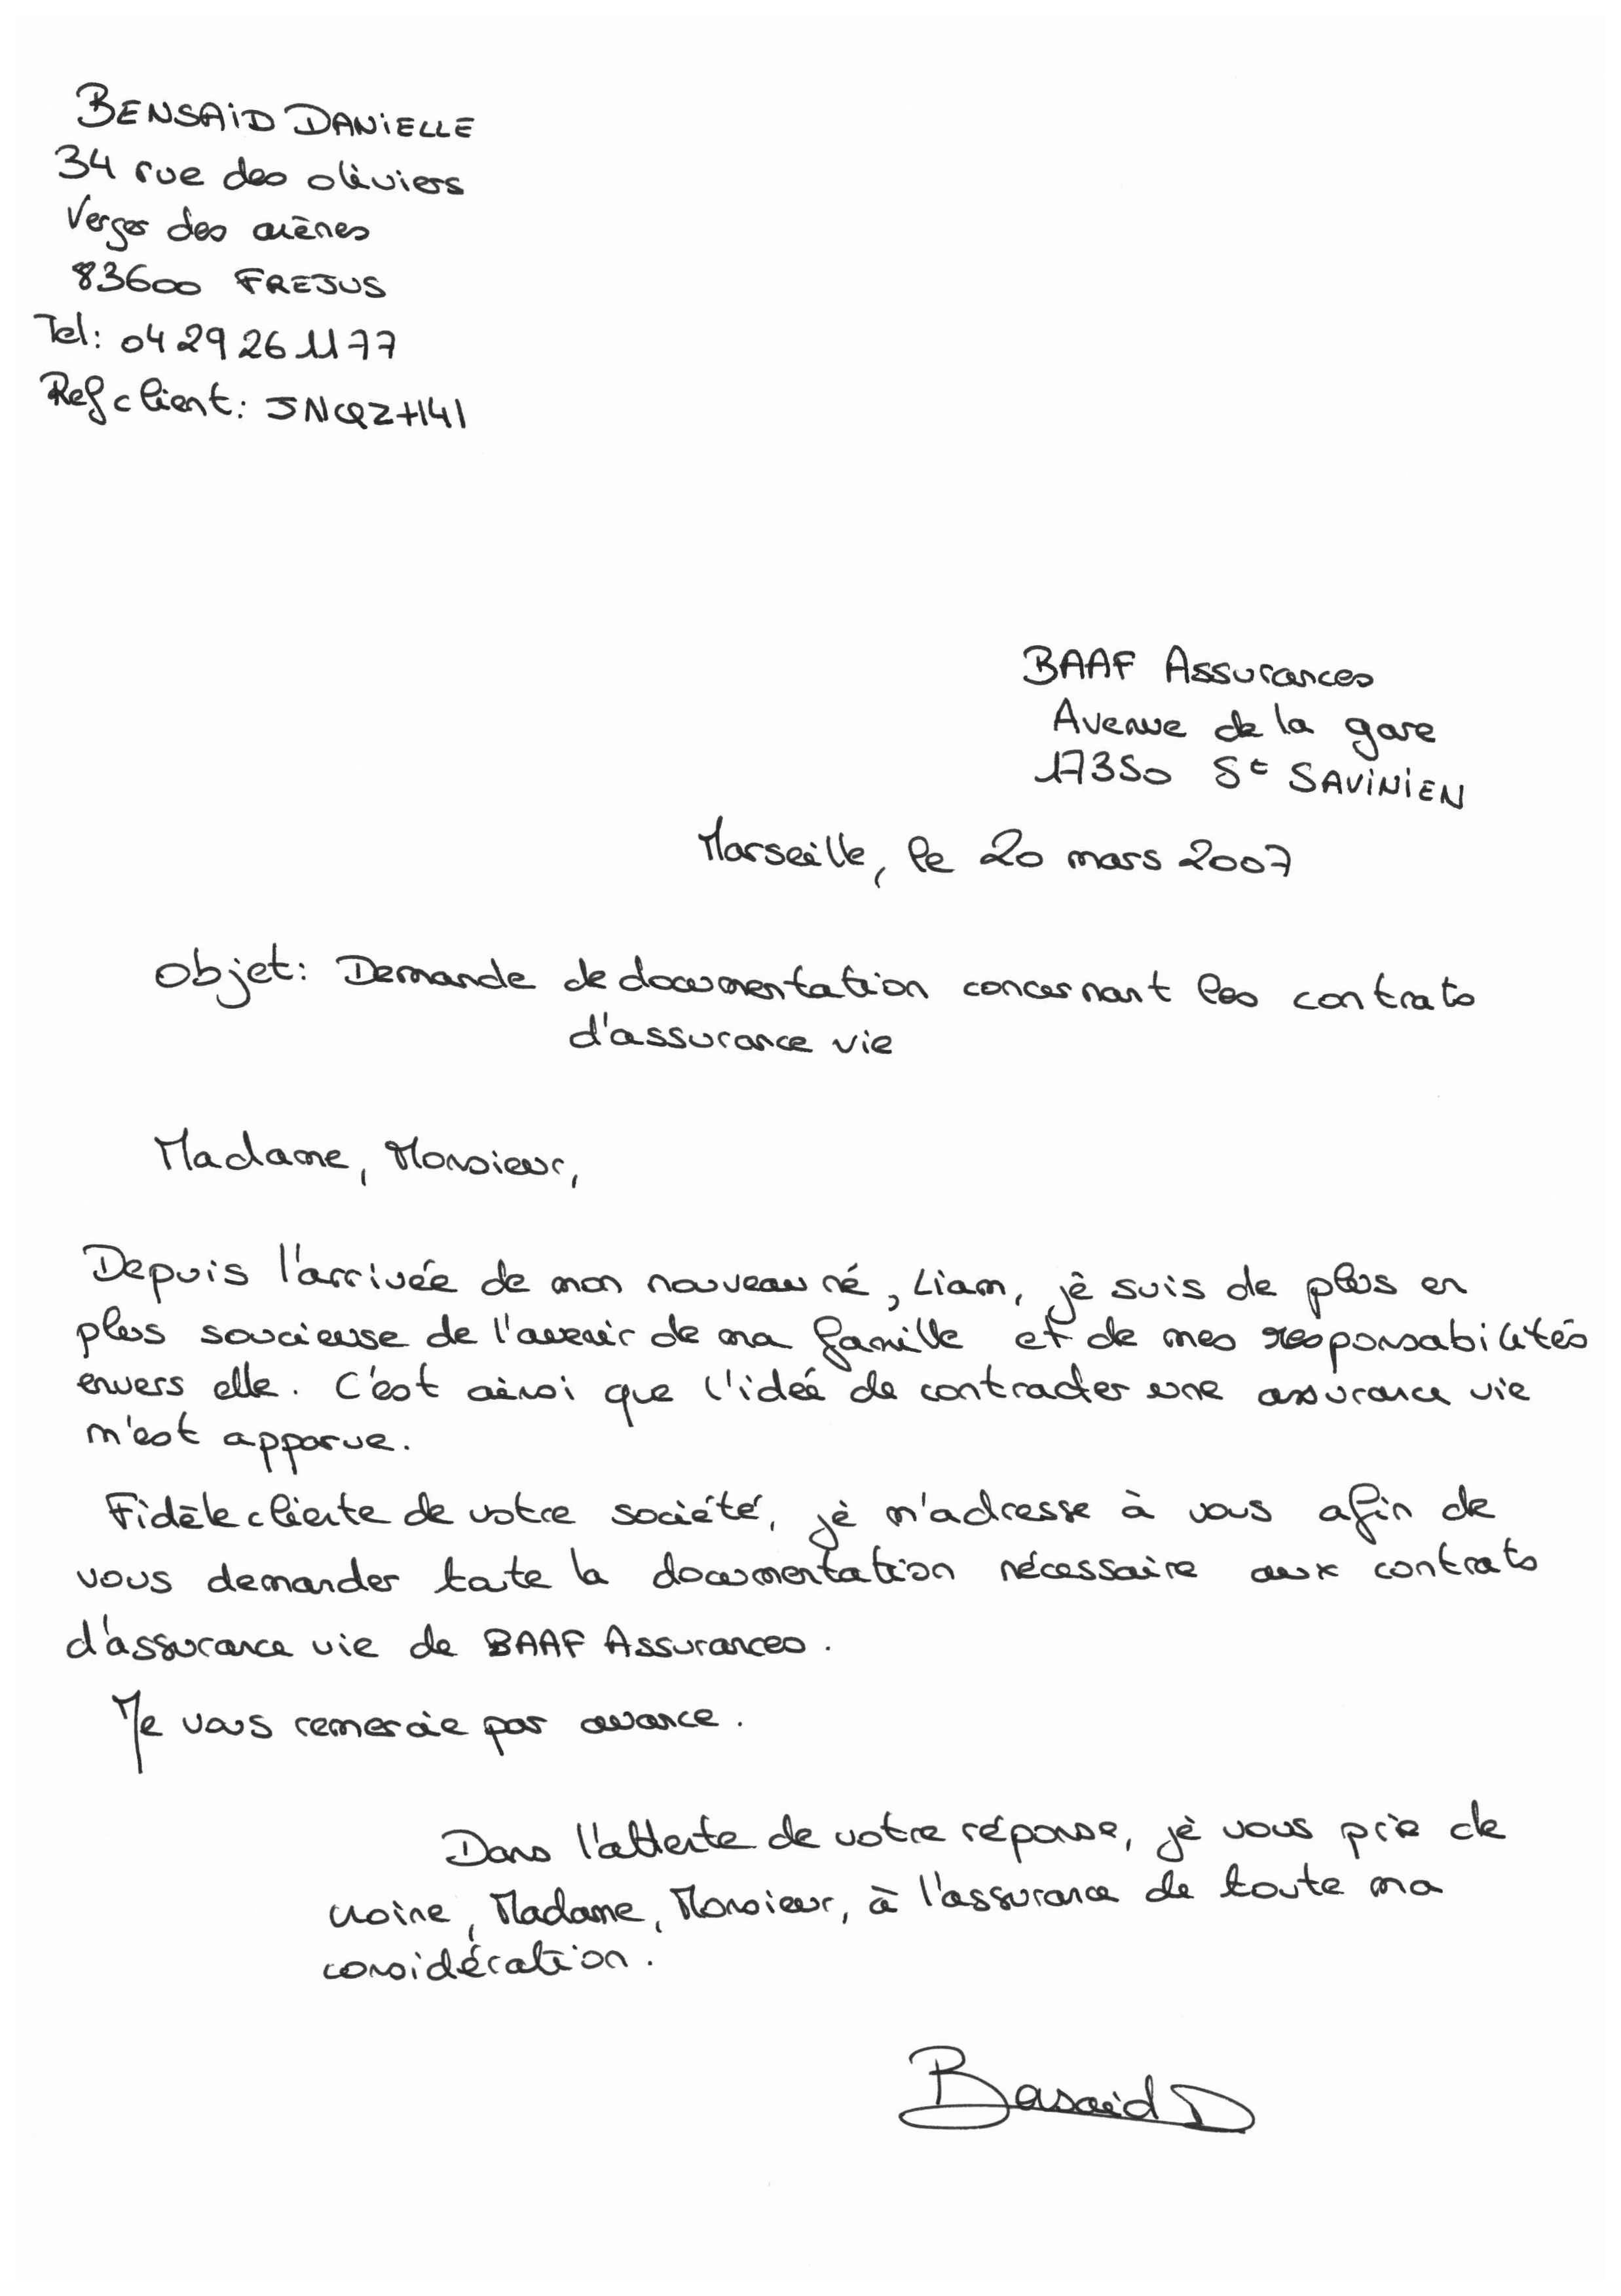 BENSAID DANIELLE
34 rue des oliviers
Verger des arènes
83600 FREJUS
Tel: 04 29 26 11 77
Ref client: JNQZH141
BAAF Assurances
Avenue de la gare
17350 St SAVINIEN
Marseille, le 20 mars 2007
Objet: Demande de documentation concernant les contrats
d'assurance vie
Madame, Monsieur,
Depuis l'arrivée de mon nouveau né, Liam, je suis de plus en
plus soucieuse de l'avenir de ma famille et de mes responsabilités
envers elle. C'est ainsi que l'idée de contracter une assurance vie
m'est apparue.
Fidèle cliente de votre société, je m'adresse à vous afin de
vous demander toute la documentation nécessaire aux contrats
d'assurance vie de BAAF Assurances.
Je vous remercie par avance.
Dans l'attente de votre réponse, je vous prie de
croire, Madame, Monsieur, à l'assurance de toute ma
considération.
Bensaid D